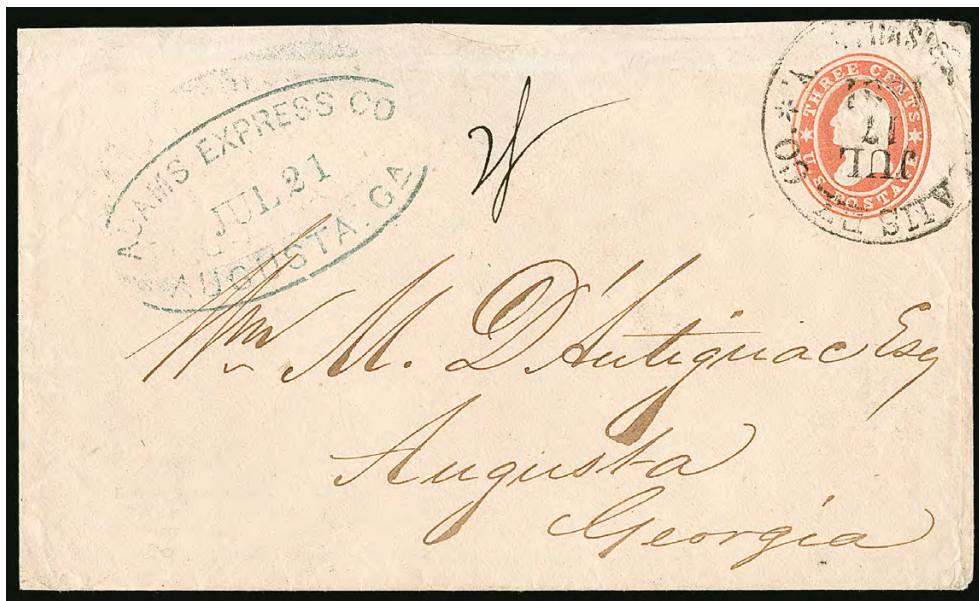 ADAMS EXPRESS CO
JUL 21
AUGUSTA. GA
THREE CENTS
U.S. POSTAGE
JUL
17
CO.
Wm M. D'Antignac Esq
Augusta
Georgia